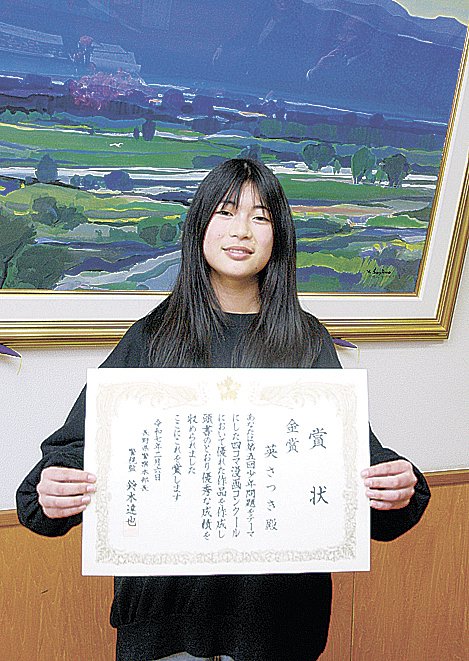 賞状
金賞
英さつき殿
あなたは第五回少年問題をテーマ
にした四コマ漫画コンクール
において優れた作品を作成し
頭書のとおり優秀な成績を
収められました
ここにこれを賞します
令和七年二月二六日
長野県警察本部長
警視監 鈴木達也